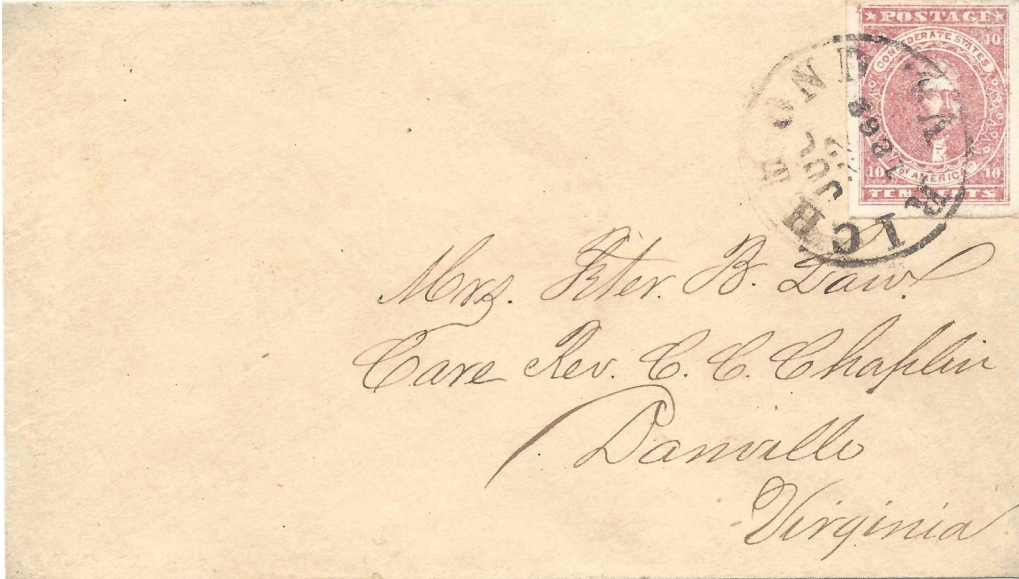 POSTAGE
CONFEDERATE STATES
10
OF AMERICA
10 10
TEN CENTS
RICHMOND VA.
JUL
186
Mrs. Peter. B.
Care Rev. C. C. Chaplin
Danville
Virginia